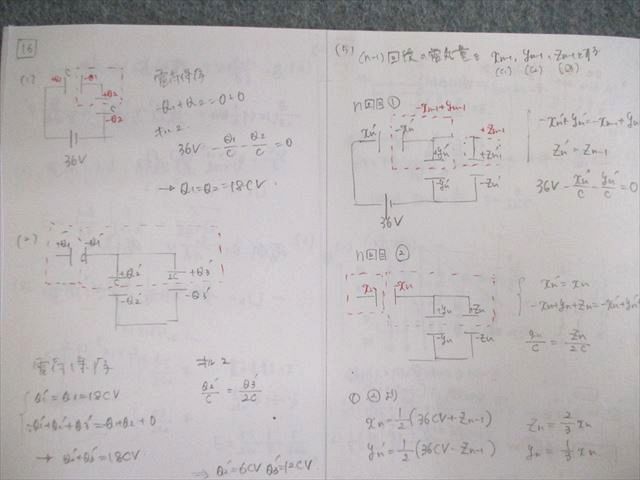 16
(1)
+Q1 C -Q1
+Q2
C
-Q2
36V
電荷保存
-Q1+Q2=0+0
キルヒ2
36V - Q1/C - Q2/C = 0
→ Q1=Q2=18CV
(2)
+Q1' -Q1'
+Q2' +Q3'
C 2C
-Q2' -Q3'
電荷保存
Q1'=Q1=18CV
-Q1'+Q2'+Q3'=-Q1+Q2+0
→ Q2'+Q3'=18CV
キルヒ2
Q2'/C = Q3'/2C
⇒ Q2'=6CV Q3'=12CV
(5) (n-1)回後の電気量を xn-1, yn-1, zn-1とする
(C1) (C2) (C3)
n回目 ①
-xn-1+yn-1
xn' -xn'
+zn-1
+yn' +zn'
-yn' -zn'
36V
-xn'+yn'=-xn-1+yn-1
zn'=zn-1
36V - xn'/C - yn'/C = 0
n回目 ②
xn -xn
+yn +zn
-yn -zn
xn'=xn
-xn+yn+zn=-xn'+yn'
yn/C = zn/2C
①②より
xn=1/2(36CV+zn-1) zn=2/3 xn
yn'=1/2(36CV-zn-1) yn=1/3 xn